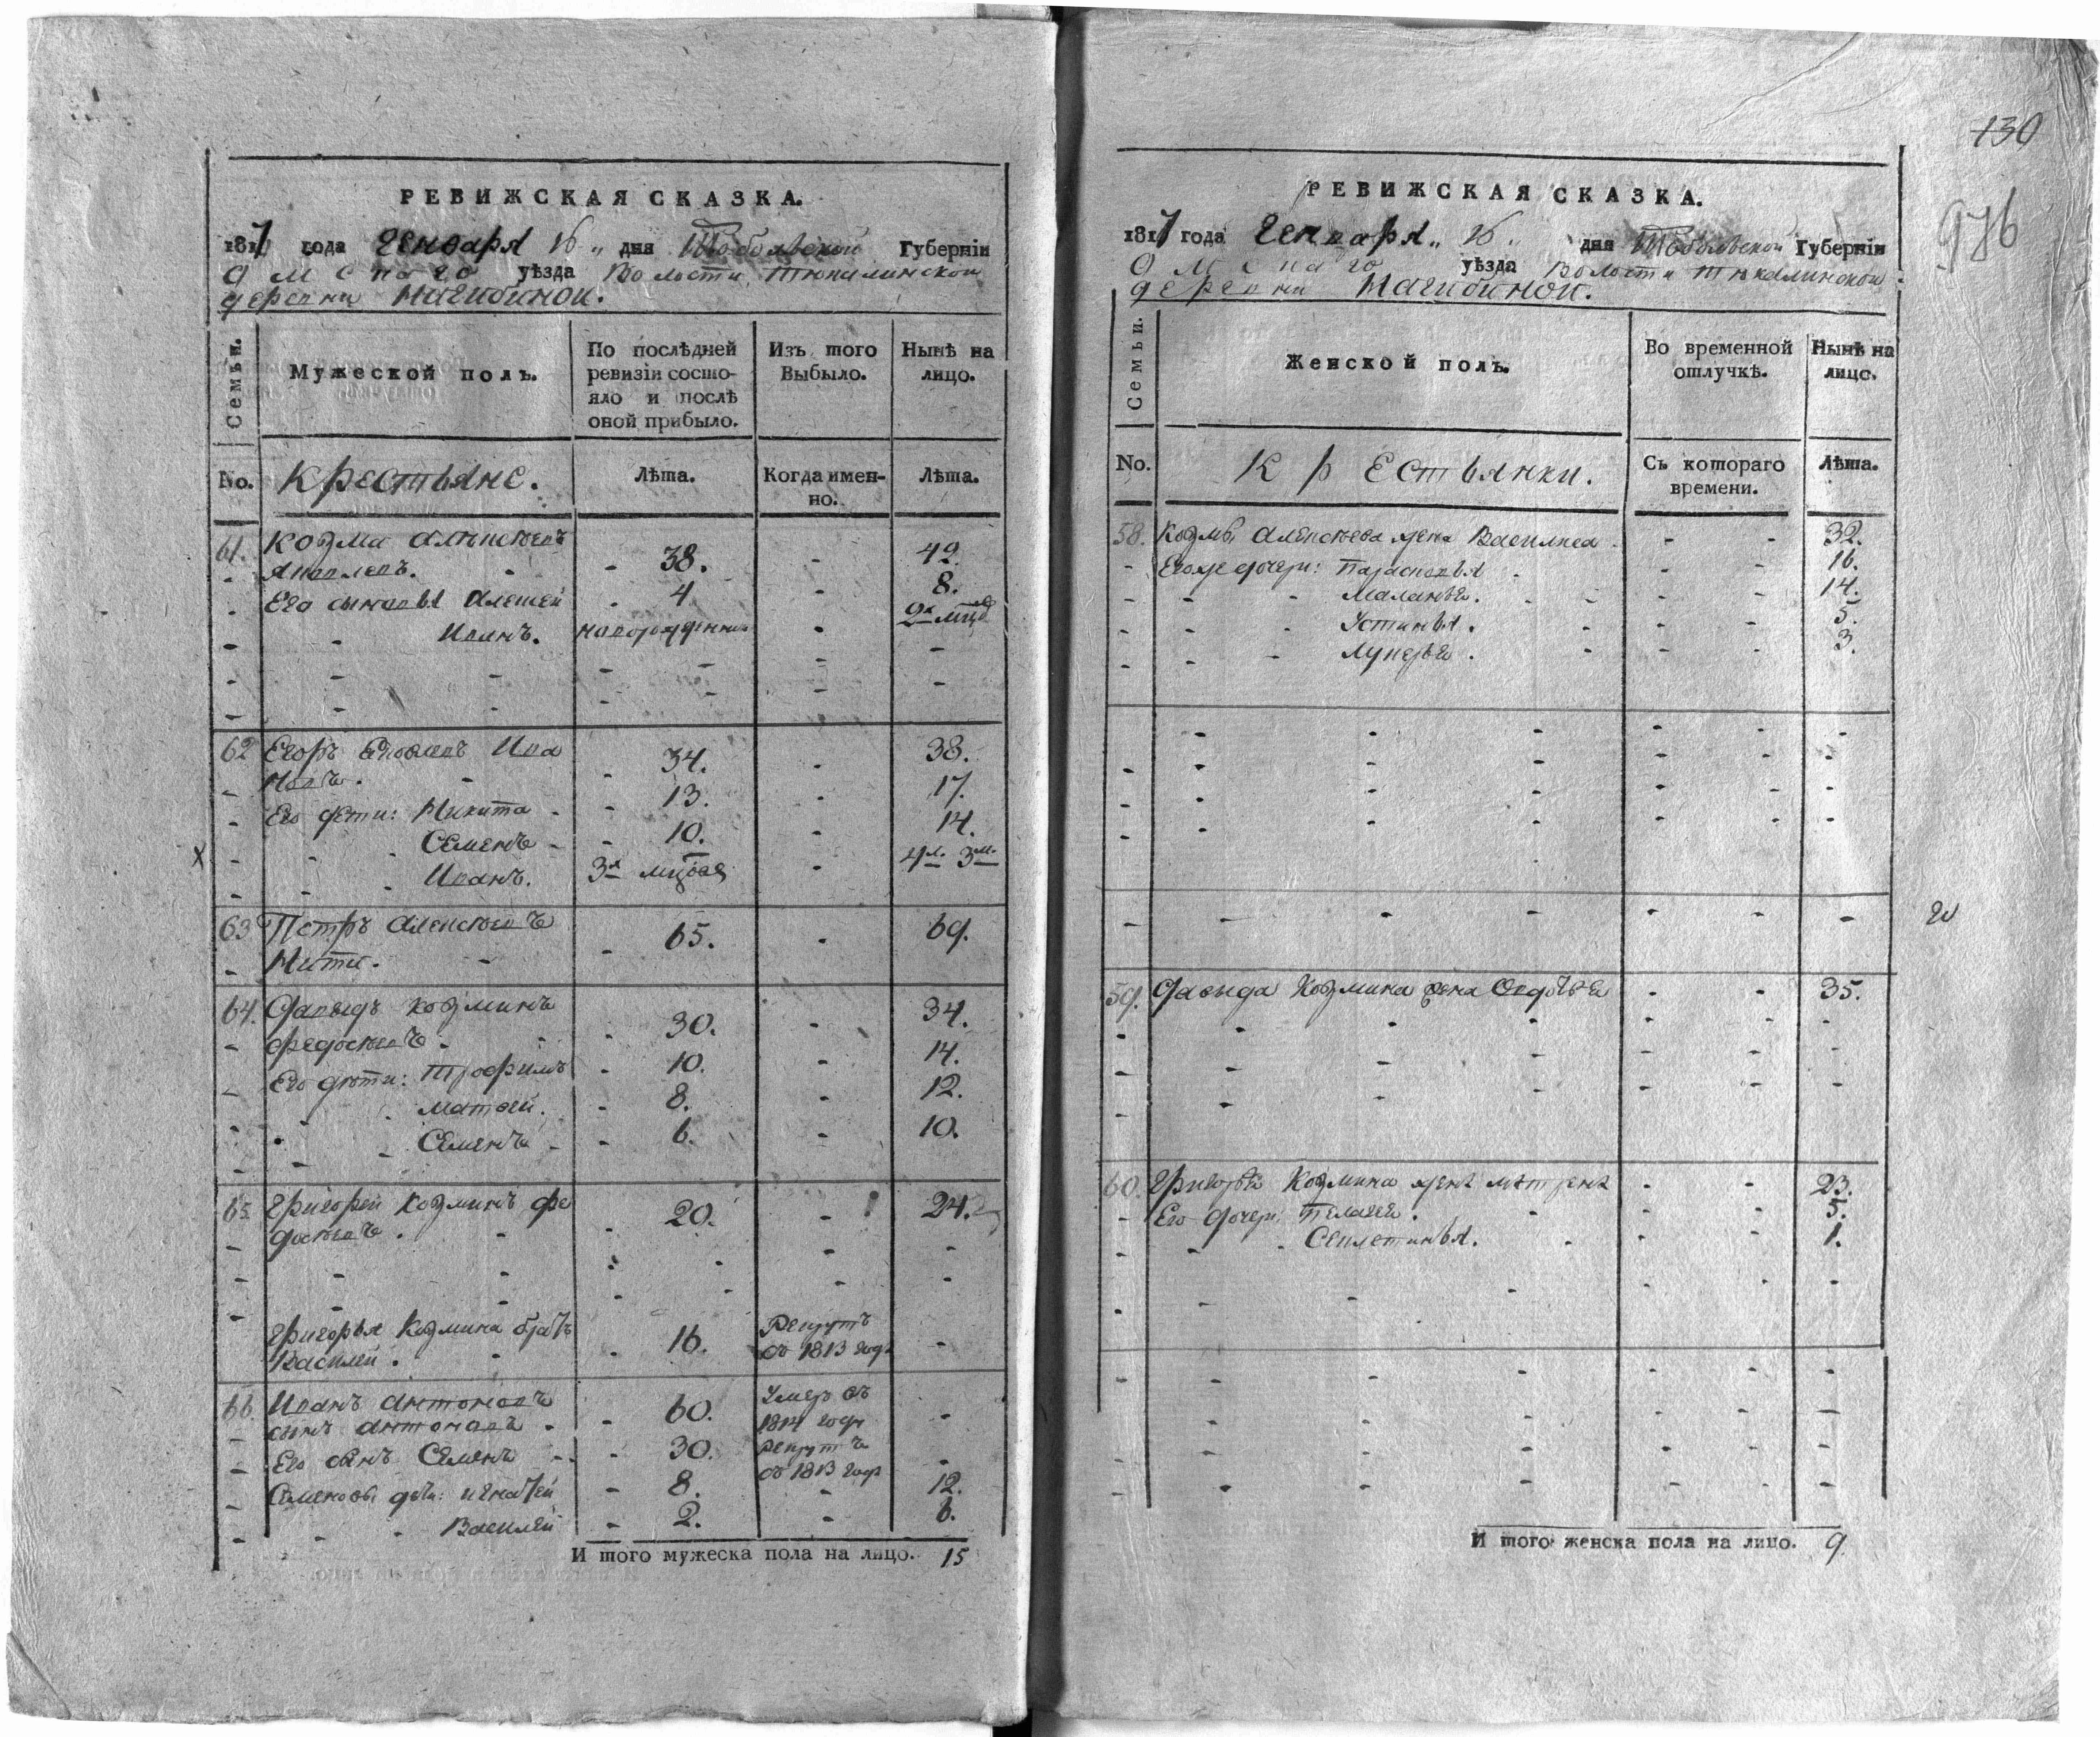 130
976
РЕВИЖСКАЯ СКАЗКА.
1817 года Генваря 16 „ дня Тобольской Губерніи
Омскаго уѣзда Волости Тюкалинской
деревни Нагибиной.
Семьи.
Мужеской полъ.
По послѣдней ревизіи состояло и послѣ оной прибыло.
Изъ того Выбыло.
Нынѣ на лицо.
No.
Крестьяне.
Лѣта.
Когда именно.
Лѣта.
61. Козма Алексѣевъ
Яковлевъ. - 38. - 42.
Его сыновья Алексей - 4 - 8.
Иванъ. новорожденной - 2х мцов
62 Егоръ Яковлевъ Ива
новъ. - 34. - 38.
Его дети: Никита - 13. - 17.
Семенъ - 10. - 14.
х Иванъ. 3х мцовъ - 4 л. 3 м.
63 Петръ Алексѣевъ
65. - 69.
64. Давыдъ Козминъ
Федосѣевъ. - 30. - 34.
Его дѣти: Трофимъ - 10. - 14.
Матвей. - 8. - 12.
Семенъ - 6. - 10.
65 Григорей Козминъ Фе
досѣевъ. - 20. - 24.
Григорья Козмина братъ
Василей. - 16. Рекрутъ
въ 1813 годе -
66. Иванъ Антоновъ
сынъ Антоновъ - 60. Умеръ въ
1814 годе -
Его сынъ Семенъ - 30. рекрутъ
въ 1813 годе -
Семеновы дѣти: Игнатей - 8. - 12.
Василей - 2. - 6.
И того мужеска пола на лицо. 15
РЕВИЖСКАЯ СКАЗКА.
1817 года Генваря „ 16 „ дня Тобольской Губерніи
Омскаго уѣзда Волости Тюкалинской
деревни Нагибиной.
Семьи.
Женской полъ.
Во временной отлучкѣ.
Нынѣ на лицо.
No.
Крестьянки.
Съ котораго времени.
Лѣта.
58. Козмы Алексѣева жена Василиса - - 32.
Его же дочери: Парасковья - - 16.
Маланья. - - 14.
Устинья. - - 5.
Лукерья. - - 3.
59. Давыда Козмина жена Овдотья - - 35.
60. Григорья Козмина жена Матрена - - 23.
Его дочери: Пелагея. - - 5.
Секлетинья. - - 1.
И того женска пола на лицо. 9